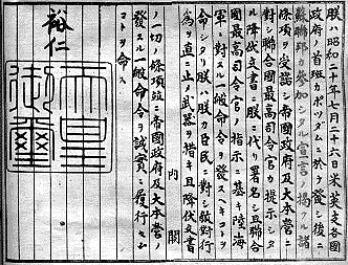 朕ハ昭和二十年七月二十六日米英支各國
政府ノ首班カポツダムニ於テ發シ後ニ
蘇聯邦カ參加シタル宣言ノ掲クル諸
條項ヲ受諾シ帝國政府及大本營ニ
對シ聯合國最高司令官カ提示シタ
ル降伏文書ニ朕ニ代リ署名シ且聯合
國最高司令官ノ指示ニ基キ陸海
軍ニ對スル一般命令ヲ發スヘキコトヲ
命シタリ朕ハ朕カ臣民ニ對シ敵對行
爲ヲ直ニ止メ武器ヲ措キ且降伏文書
內閣
ノ一切ノ條項竝ニ帝國政府及大本營ノ
發スル一般命令ヲ誠實ニ履行セム
コトヲ命ス
裕仁
天皇
御璽